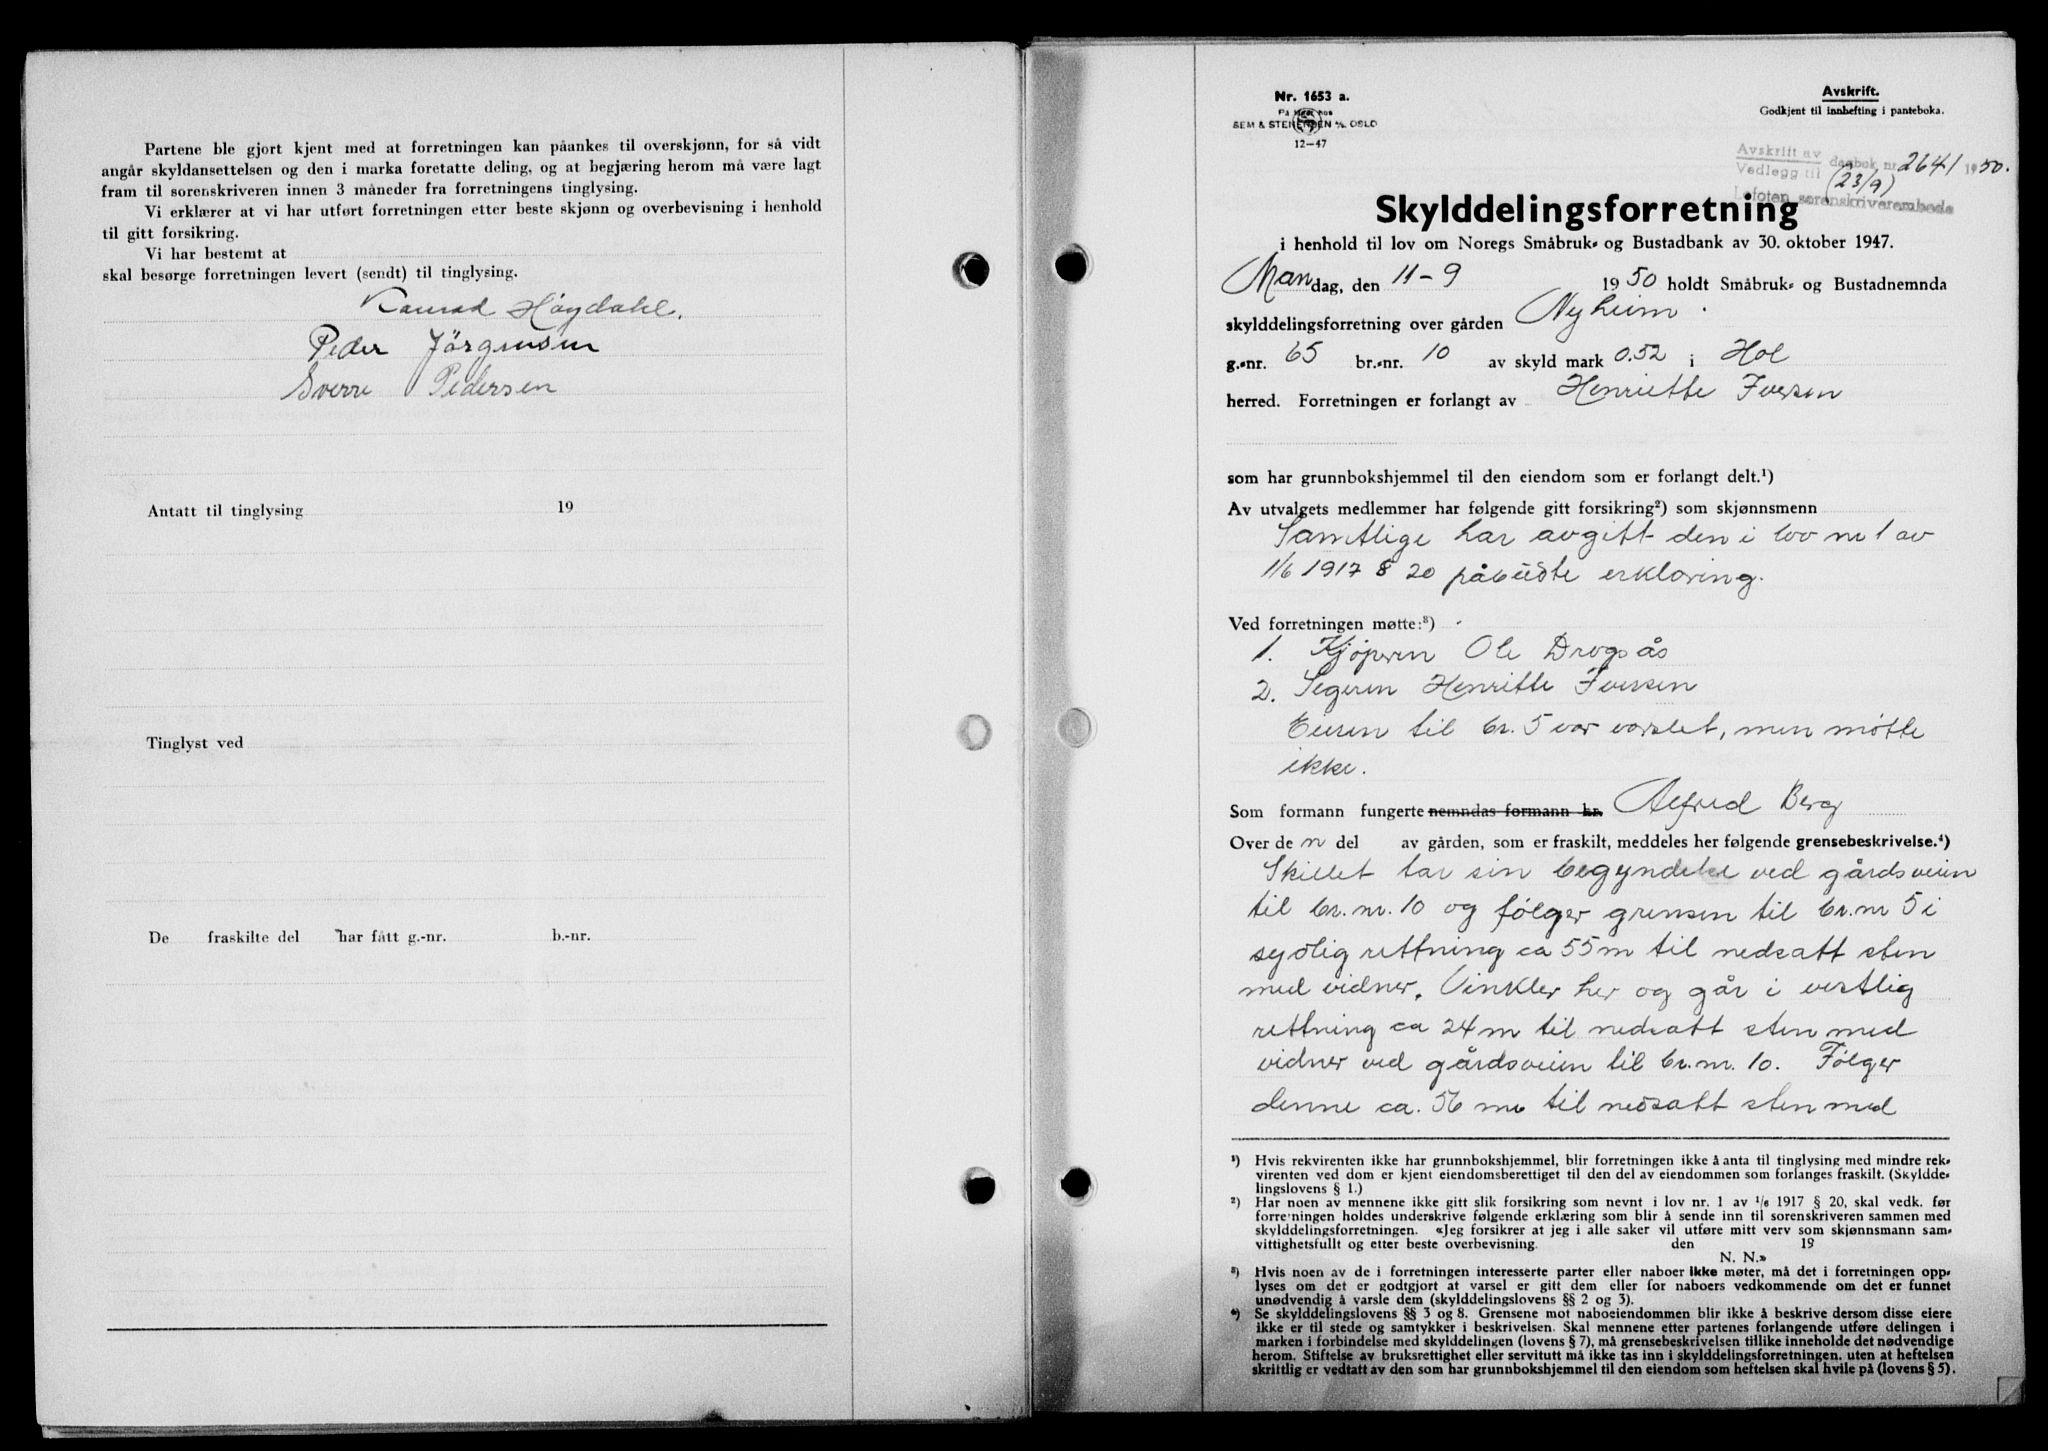 Partene ble gjort kjent med at forretningen kan påankes til overskjønn, for så vidt
angår skyldansettelsen og den i marka foretatte deling, og at begjæring herom må være lagt
fram til sorenskriveren innen 3 måneder fra forretningens tinglysing.
Vi erklærer at vi har utført forretningen etter beste skjønn og overbevisning i henhold
til gitt forsikring.
Vi har bestemt at
skal besørge forretningen levert (sendt) til tinglysing.
Konrad Høydahl.
Peder Jörgensen
Sverre Pedersen
Antatt til tinglysing 19
Tinglyst ved
De fraskilte del har fått g.-nr. b.-nr.
Nr. 1653 a.
På lager hos
SEM & STENERSEN A/S OSLO
12—47
Avskrift.
Godkjent til innhefting i panteboka.
Avskrift av
Vedlegg til dagbok nr. 2641 1950.
(23/9)
Lofoten sorenskriverembede
Skylddelingsforretning
i henhold til lov om Noregs Småbruk- og Bustadbank av 30. oktober 1947.
Mandag, den 11-9 1950 holdt Småbruk- og Bustadnemnda
skylddelingsforretning over gården Nyheim
g.-nr. 65 br.-nr. 10 av skyld mark 0.52 i Hol
herred. Forretningen er forlangt av Henriette Iversen
som har grunnbokshjemmel til den eiendom som er forlangt delt.¹)
Av utvalgets medlemmer har følgende gitt forsikring²) som skjønnsmenn
Samtlige har avgitt den i lov nr 1 av
1/6 1917 § 20 påbudte erklæring.
Ved forretningen møtte:³)
1. Kjøperen Ole Drogsås
2. Segeren Henritte Iversen
Eieren til br. 5 var varslet, men møtte
ikke.
Som formann fungerte nemndas formann hr. Alfred Berg
Over den del av gården, som er fraskilt, meddeles her følgende grensebeskrivelse.⁴)
Skillet tar sin begyndelse ved gårdsveien
til br. nr. 10 og følger grensen til br. nr 5 i
sydlig rettning ca 55 m til nedsatt sten
med vidner. Vinkler her og går i vestlig
rettning ca 24 m til nedsatt sten med
vidner ved gårdsveien til br. nr. 10. Følger
denne ca. 56 m til nedsatt sten med
¹) Hvis rekvirenten ikke har grunnbokshjemmel, blir forretningen ikke å anta til tinglysing med mindre rek-
virenten ved dom er kjent eiendomsberettiget til den del av eiendommen som forlanges fraskilt. (Skyldde-
lingslovens § 1.)
²) Har noen av mennene ikke gitt slik forsikring som nevnt i lov nr. 1 av 1/6 1917 § 20, skal vedk. før
forretningen holdes underskrive følgende erklæring som blir å sende inn til sorenskriveren sammen med
skylddelingsforretningen. «Jeg forsikrer at jeg i alle saker vil utføre mitt verv som skjønnsmann sam-
vittighetsfullt og etter beste overbevisning. den 19
N. N.»
³) Hvis noen av de i forretningen interesserte parter eller naboer ikke møter, må det i forretningen opp-
lyses om det er godtgjort at varsel er gitt dem eller for naboers vedkommende om det er funnet
unødvendig å varsle dem (skylddelingslovens §§ 2 og 3).
⁴) Se skylddelingslovens §§ 3 og 8. Grensene mot naboeiendommen blir ikke å beskrive dersom disse eiere
ikke er til stede og samtykker i beskrivelsen. Skal mennene etter partenes forlangende utføre delingen i
marken i forbindelse med skylddelingen (lovens § 7), må grensebeskrivelsen tillike inneholde det nødvendige
herom. Stiftelse av bruksrettighet eller servitutt må ikke tas inn i skylddelingsforretningen, uten at heftelsen
skriftlig er vedtatt av den som har grunnbokshjemmel til den eiendom som heftelsen skal hvile på (lovens § 5).